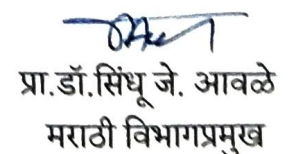 प्रा.डॉ.सिंधू जे. आवळे
मराठी विभागप्रमुख